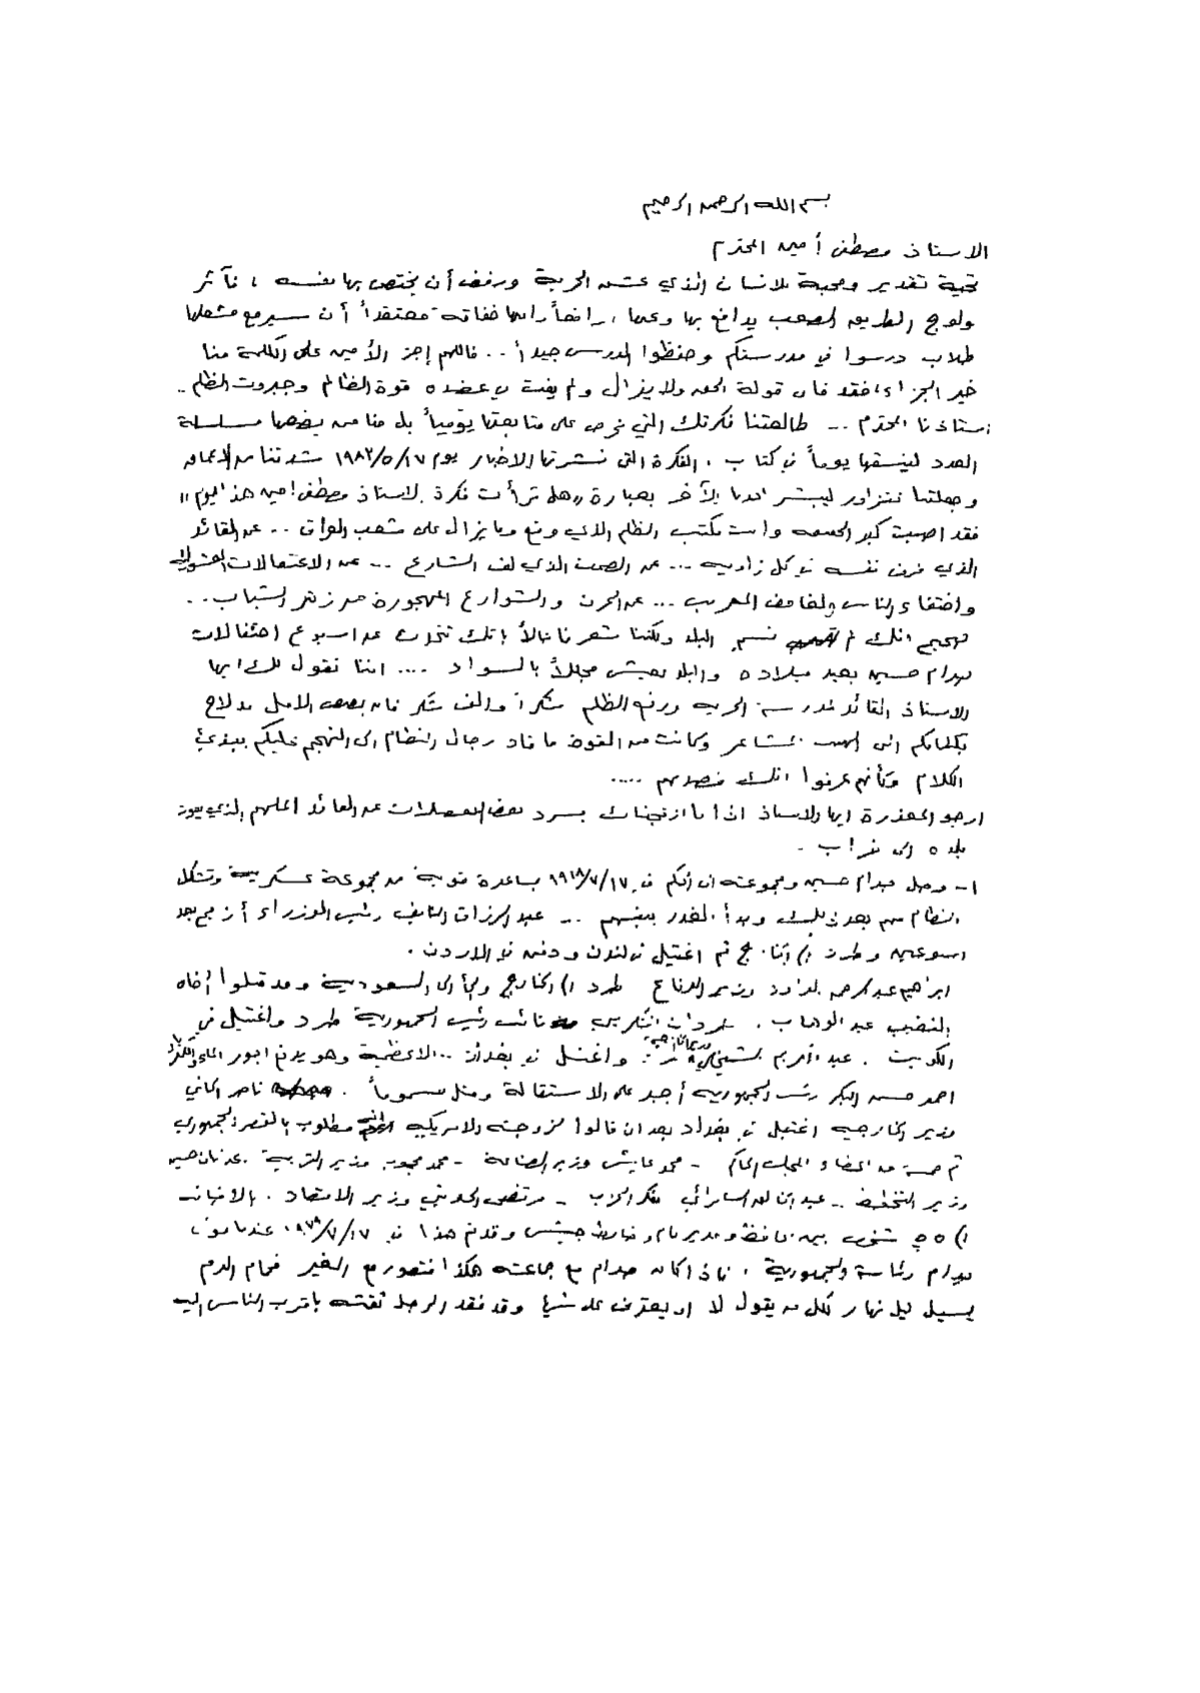 بسم الله الرحمن الرحيم
الاستاذ مصطفى أمين المحترم
تحية تقدير ومحبة للانسان الذي عشق الحرية ورفض أن يختص بها نفسه ، فآثر
ولوج الطريق الصعب يدافع بها وعنها ، رافضاً معتقداً أن سيرفع مشعلها
طلاب درسوا في مدرستكم وحفظوا الدرس جيداً .. فاللهم إجز الأمين على الكلمة منا
خير الجزاء فقد قولة الحق ولا يزال ولم يفت في عضده قوة الظالم وجبروت الظلم ..
استاذنا المحترم .. طالعتنا فكرتك التي نحرص على متابعتها يومياً بل منا من يضعها مسلسلة
العدد لينسقها يوماً في كتاب . الفكرة التي نشرتها الاخبار يوم ١٩٨٢/٥/١٧ شدتنا من الاعماق
وجعلتنا نتزاور ليبشر احدنا الآخر بعبارة "هل قرأت فكرة الاستاذ مصطفى امين هذا اليوم"
فقد اصبت كبد الحقيقة وانت تكتب الظلم الذي وقع وما يزال على شعب العراق .. عن القائد
الذي فرض نفسه في كل زاوية ... عن الصمت الذي لف الشارع ... عن الاعتقالات العشوائية
واختفاء الناس الغامض المريب ... عن الحزن والشوارع المهجورة من زهر الشباب ..
صحيح انك لم تسم البلد ولكننا شعرنا حالاً بانك تتحدث عن اسبوع احتفالات
صدام حسين بعيد ميلاده والبلد يعيش مجللاً بالسواد .... اننا نقول لك ايها
الاستاذ القائد لمدرسة الحرية ورفع الظلم شكراً والف شكر فان بصيص الامل قد لاح
بكلماتكم التي المشاعر وكانت من القوة ما قاد رجال النظام الى التهجم عليكم ببذيء
الكلام وكأنهم عرفوا انك قصدتهم .....
ارجو المعذرة ايها الاستاذ اذا ما ازعجناك بسرد بعض التفصيلات عن القائد الملهم الذي يقود
بلده الى الخراب .
١- وصل صدام حسين ومجموعته الى الحكم في ١٩٦٨/٧/١٧ بمساعدة قوية من مجموعة عسكرية وتشكل
النظام منهم بعد ذلك وبدأ الغدر ببعضهم .. عبد الرزاق النايف رئيس الوزراء أزيح بعد
اسبوعين وطرد الى الخارج ثم اغتيل في لندن ودفن في الاردن .
ابراهيم عبد الرحمن الداود وزير الدفاع طرد الى الخارج ولجأ الى السعودية وقد قتلوا أخاه
النقيب عبد الوهاب . حردان التكريتي نائب رئيس الجمهورية طرد واغتيل في
الكويت . عبد الكريم الشيخلي وزير الخارجية واغتيل في بغداد .. الاعظمية وهو يدفع اجور الماء والكهرباء
احمد حسن البكر رئيس الجمهورية أجبر على الاستقالة وقتل مسموماً . ناصر الحاني
وزير الخارجية اغتيل في بغداد بعد ان قالوا لزوجته الامريكية انه مطلوب بالقصر الجمهوري
ثم خمسة من اعضاء المجلس الحاكم - محمد عايش وزير الصناعة - محمد محجوب وزير التربية . عدنان حسين
وزير التخطيط .. عبد الخالق السامرائي مفكر الحزب - مرتضى الحديثي وزير الاقتصاد . بالاضافة
الى ٥٥ شخص بين محافظ ومدير عام وضابط جيش وقد تم هذا في ١٩٧٩/٧/١٧ عندما تولى
صدام رئاسة الجمهورية . فاذا كان صدام مع جماعته هكذا فتصور مع الغير فحمام الدم
يسيل ليل نهار لكل من يقول لا او يعترض على شيء وقد فقد الرجل ثقته بأقرب الناس اليه